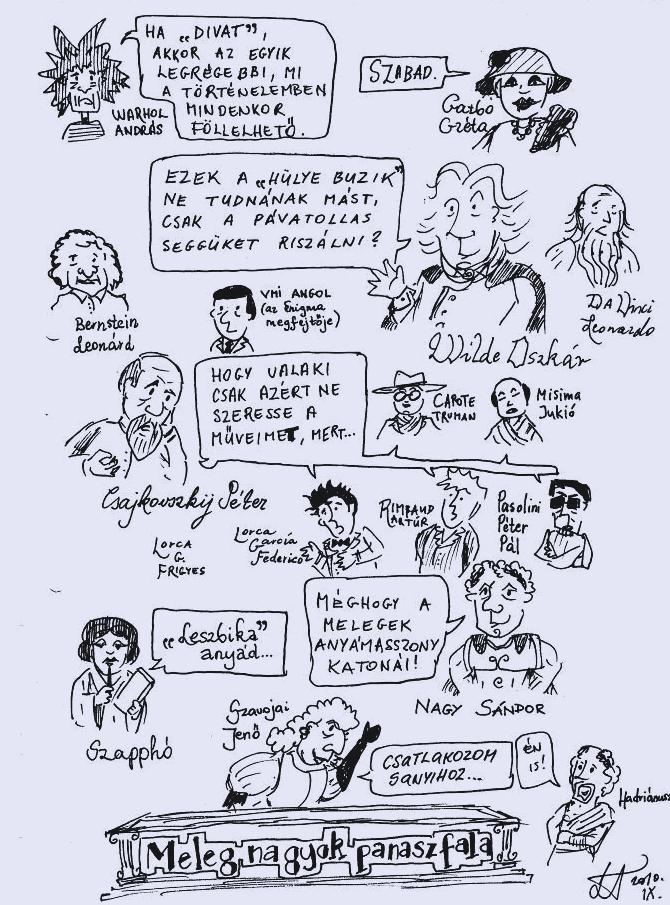 HA „DIVAT”,
AKKOR AZ EGYIK
LEGRÉGEBBI, MI
A TÖRTÉNELEMBEN
MINDENKOR
FÖLLELHETŐ.
WARHOL
ANDRÁS
SZABAD.
Garbó
Gréta
EZEK A „HÜLYE BUZIK”
NE TUDNÁNAK MÁST,
CSAK A PÁVATOLLAS
SEGGÜKET RISZÁLNI?
Bernstein
Leonárd
VMI ANGOL
(az Enigma
megfejtője)
Wilde Oszkár
Da Vinci
Leonardo
HOGY VALAKI
CSAK AZÉRT NE
SZERESSE A
MŰVEIMET, MERT...
CAPOTE
TRUMAN
Misima
Jukió
Csajkovszkij Péter
LORCA
G.
FRIGYES
Lorca
García
Federico
RIMBAUD
ARTÚR
Pasolini
Péter
Pál
„Leszbika”
anyád...
MÉGHOGY A
MELEGEK
ANYÁMASSZONY
KATONÁI!
NAGY SÁNDOR
Szapphó
Szavojai
Jenő
CSATLAKOZOM
SANYIHOZ...
ÉN
IS!
Hadriánusz
Meleg nagyok panaszfala
2010.
IX.